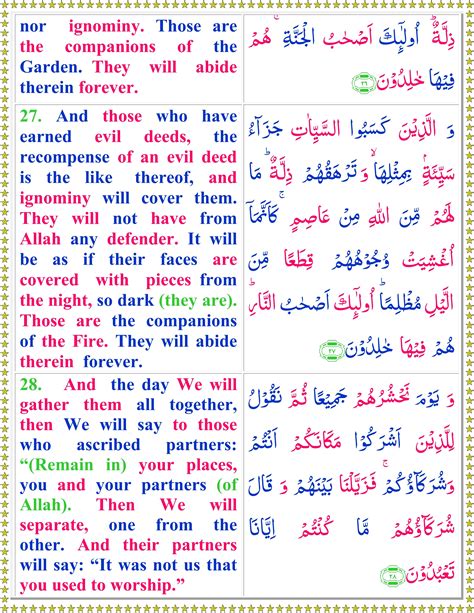 nor ignominy. Those are
the companions of the
Garden. They will abide
therein forever.
ذِلَّةٌ ؕ اُولٰٓئِكَ اَصۡحٰبُ الۡجَنَّةِ ۚ هُمۡ
فِيۡهَا خٰلِدُوۡنَ ﴿۲۶﴾
27. And those who have
earned evil deeds, the
recompense of an evil deed
is the like thereof, and
ignominy will cover them.
They will not have from
Allah any defender. It will
be as if their faces are
covered with pieces from
the night, so dark (they are).
Those are the companions
of the Fire. They will abide
therein forever.
وَ الَّذِيۡنَ كَسَبُوا السَّيِّاٰتِ جَزَآءُ
سَيِّئَةٍۢ بِمِثۡلِهَا ۙ وَ تَرۡهَقُهُمۡ ذِلَّةٌ ؕ مَا
لَهُمۡ مِّنَ اللّٰهِ مِنۡ عَاصِمٍ ۚ كَاَنَّمَاۤ
اُغۡشِيَتۡ وُجُوۡهُهُمۡ قِطَعًا مِّنَ
الَّيۡلِ مُظۡلِمًا ؕ اُولٰٓئِكَ اَصۡحٰبُ النَّارِ ۚ
هُمۡ فِيۡهَا خٰلِدُوۡنَ ﴿۲۷﴾
28. And the day We will
gather them all together,
then We will say to those
who ascribed partners:
“(Remain in) your places,
you and your partners (of
Allah). Then We will
separate, one from the
other. And their partners
will say: “It was not us that
you used to worship.”
وَ يَوۡمَ نَحۡشُرُهُمۡ جَمِيۡعًا ثُمَّ نَقُوۡلُ
لِلَّذِيۡنَ اَشۡرَكُوۡا مَكَانَكُمۡ اَنۡتُمۡ
وَشُرَكَآؤُكُمۡ ۚ فَزَيَّلۡنَا بَيۡنَهُمۡ وَ قَالَ
شُرَكَآؤُهُمۡ مَّا كُنۡتُمۡ اِيَّانَا
تَعۡبُدُوۡنَ ﴿۲۸﴾